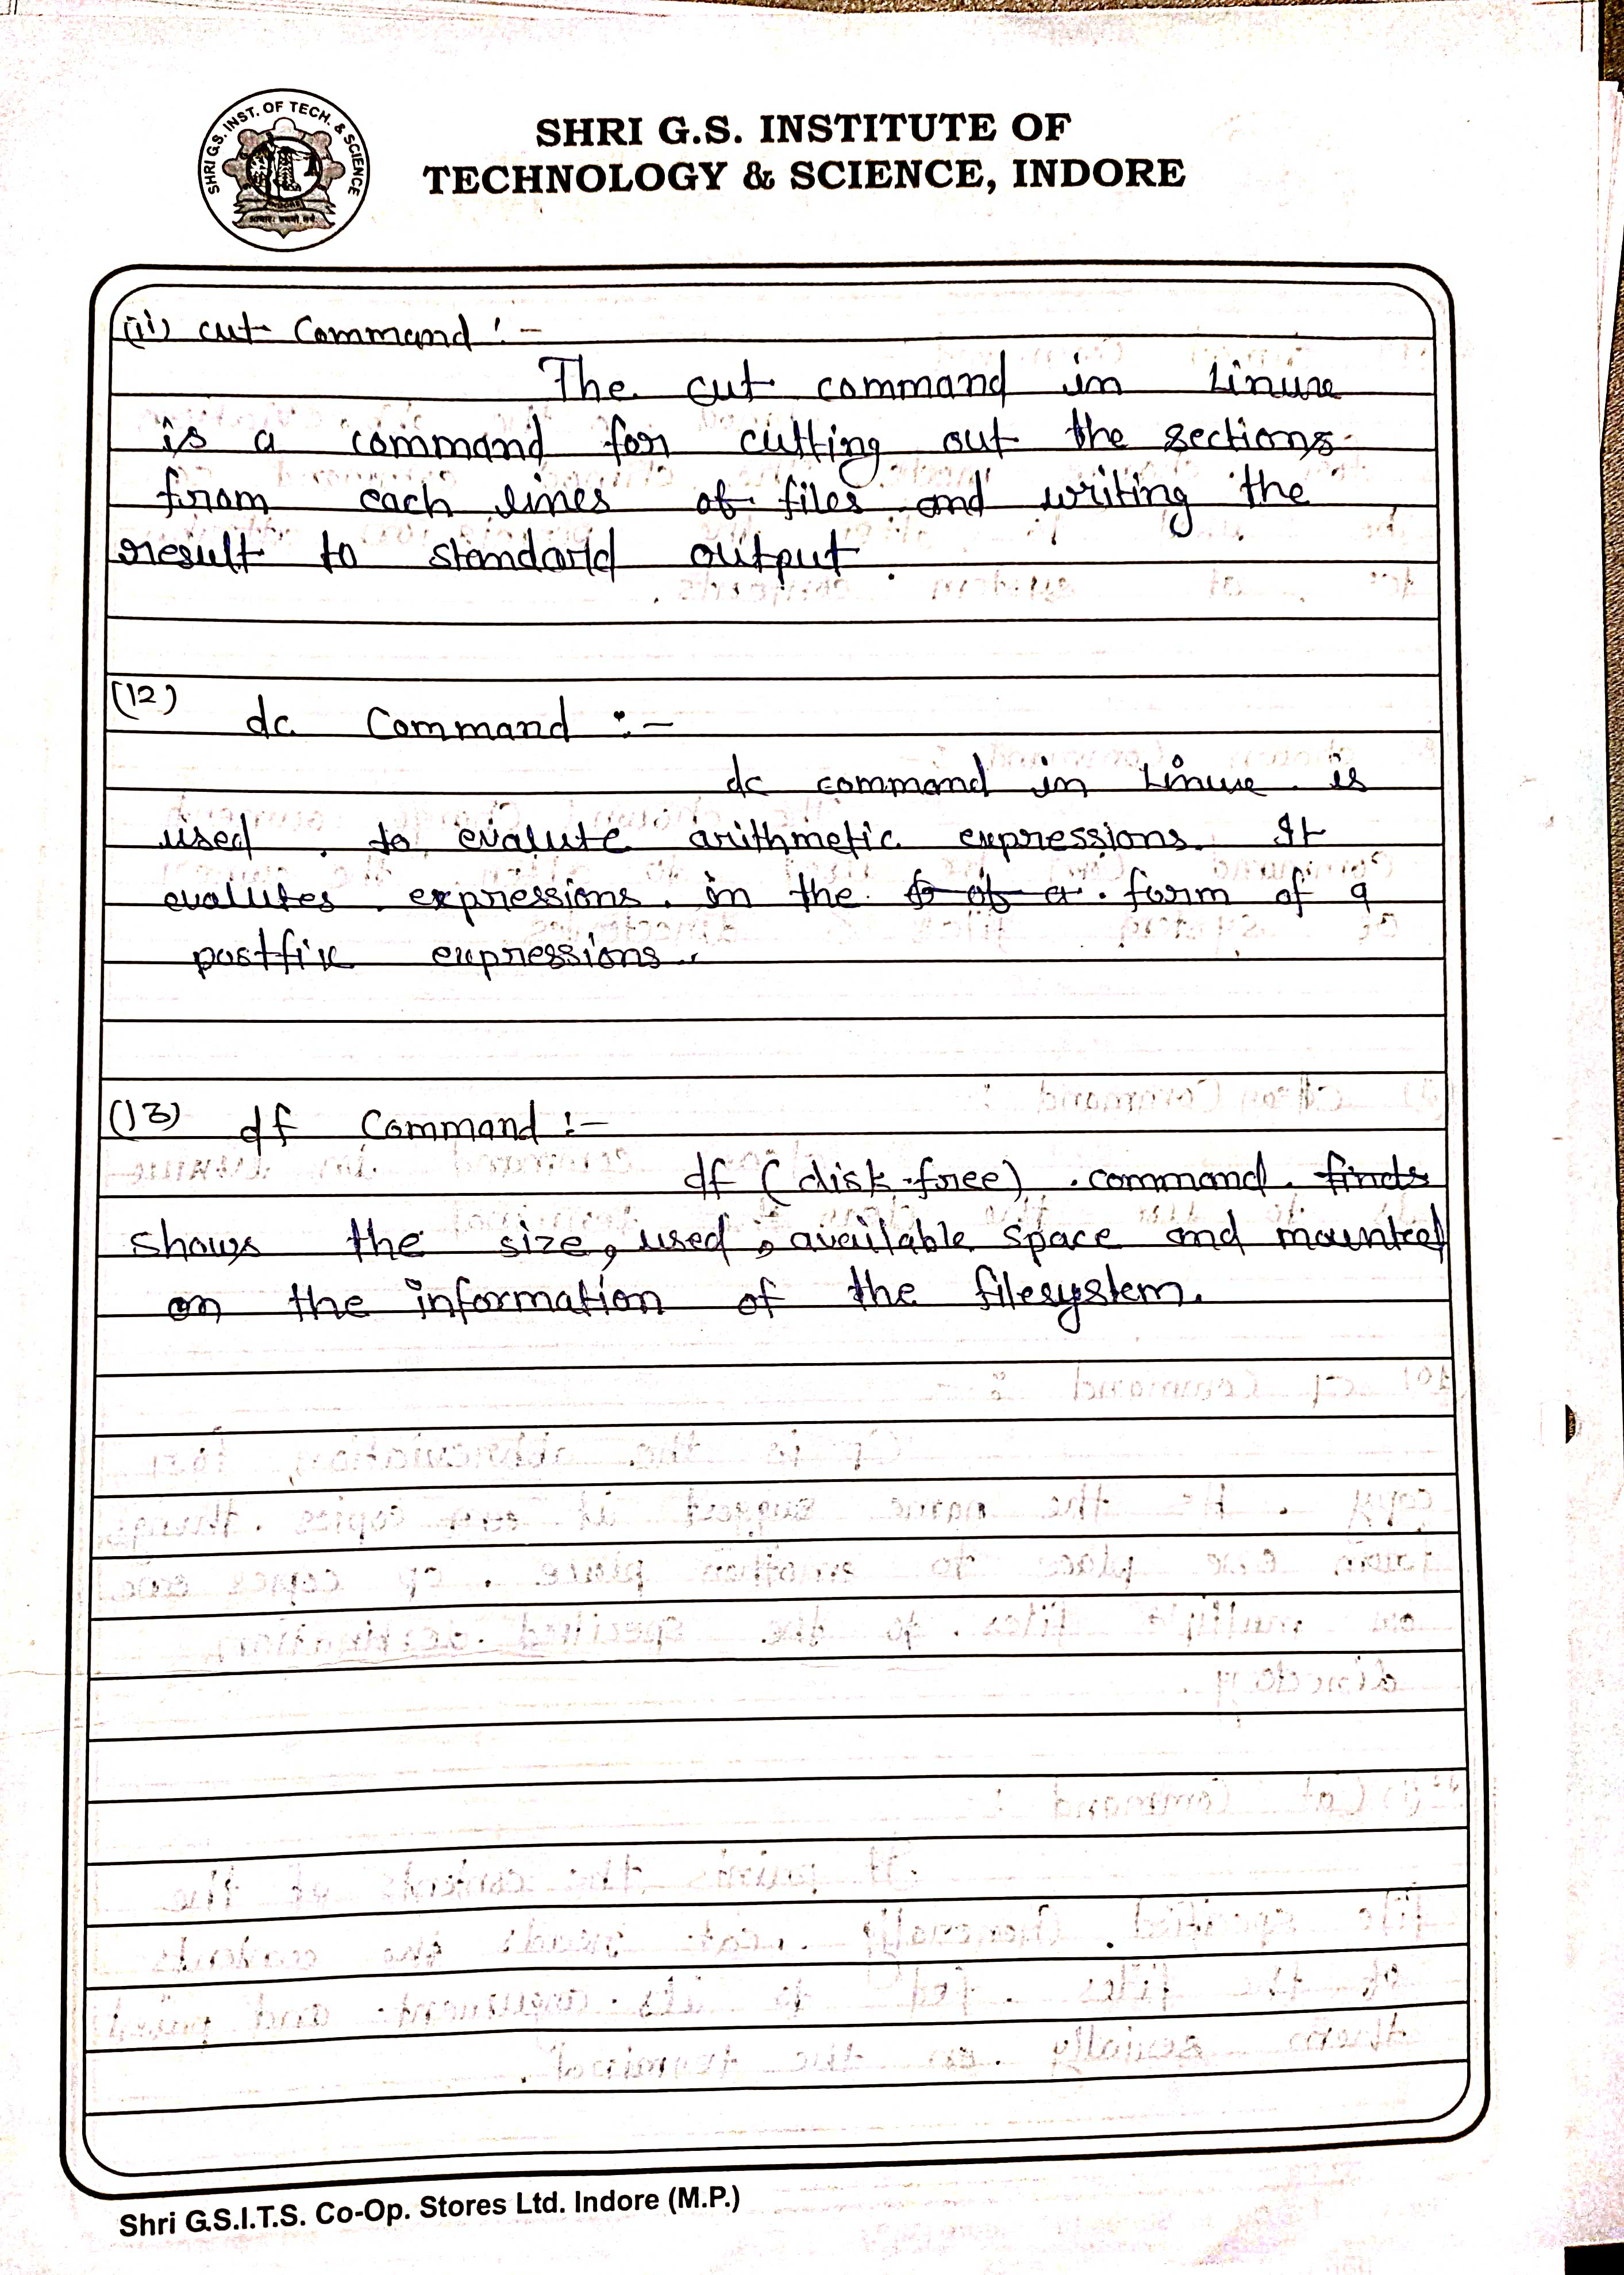 SHRI G.S. INST. OF TECH. & SCIENCE
SHRI G.S. INSTITUTE OF
TECHNOLOGY & SCIENCE, INDORE
(ii) cut Command :-
The cut command in Linux
is a command for cutting out the sections
from each lines of files and writing the
result to standard output.
(12)
dc Command :-
dc command in Linux is
used to evalute arithmetic expressions. It
evalutes expressions in the form of a
postfix expressions.
(13) df Command :-
df (disk free) command finds
shows the size, used, available space and mounted
on the information of the filesystem.
Shri G.S.I.T.S. Co-Op. Stores Ltd. Indore (M.P.)